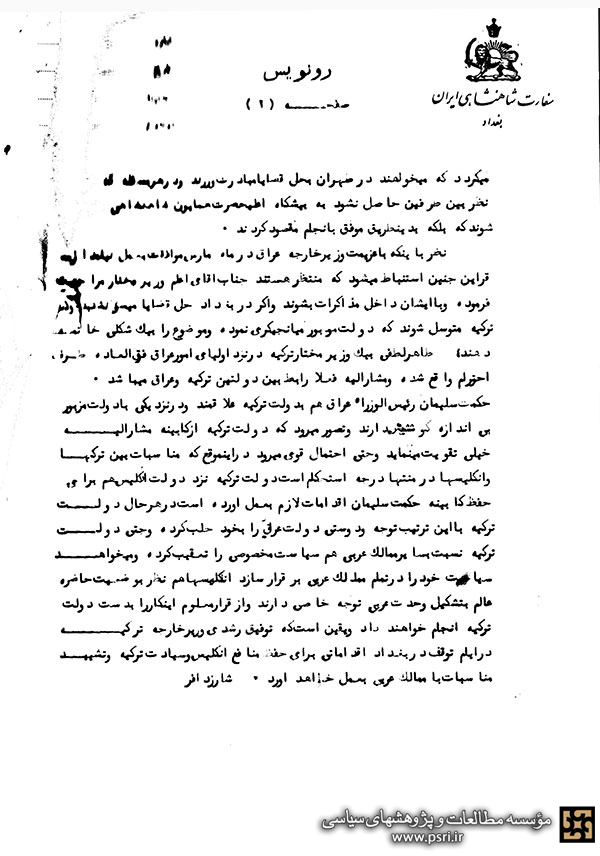 سفارت شاهنشاهی ایران
بغداد
رونویس
صفحه (۲)
میگردد که میخواهند در طهران بحل قضایا مبادرت ورزند و در هر مسئله که
نظر بین طرفین حاصل نشود به پیشگاه اعلیحضرت همایون شاهنشاهی
شوند که بلکه بدینطریق موفق بانجام مقصود گردند.
نظر باینکه با عزیمت وزیر خارجه عراق در ماه مارس موافقت بعمل
قراین چنین استنباط میشود که منتظر هستند جناب آقای اعلم وزیر مختار مراجعت
فرموده و با ایشان داخل مذاکرات بشوند و اگر در بغداد حل قضایا میسر نشد
ترکیه متوسل شوند که دولت مزبور میانجیگری نموده و موضوع را بیک شکلی خاتمه
دهند طاهر لطفی بیک وزیر مختار ترکیه در نزد اولیای امور عراق فوق العاده طرف
احترام واقع شده و مشارالیه فعلا رابط بین دولتین ترکیه و عراق میباشد.
حکمت سلیمان رئیس الوزراء عراق هم بدولت ترکیه علاقمند و در نزدیکی با دولت مزبور
بی اندازه کوشش دارند و تصور میرود که دولت ترکیه از کابینه مشارالیه
خیلی تقویت مینماید و حتی احتمال قوی میرود در اینموقع که مناسبات بین ترکها
و انگلیسها در منتها درجه استحکام است دولت ترکیه نزد دولت انگلیس هم برای
حفظ کابینه حکمت سلیمان اقدامات لازم بعمل آورده است در هر حال دولت
ترکیه با این ترتیب توجه و دوستی دولت عراق را بخود جلب کرده و حتی دولت
ترکیه نسبت بسایر ممالک عربی هم سیاست مخصوصی را تعقیب کرده و میخواهد
سیاست خود را در تمام ممالک عربی برقرار سازد انگلیسها هم نظر بوضعیت حاضره
عالم بتشکیل وحدت عربی توجه خاصی دارند و از قرار معلوم اینکار را بدست دولت
ترکیه انجام خواهند داد و یقین است که توفیق رشدی وزیر خارجه ترکیه
در ایام توقف در بغداد اقداماتی برای حفظ منافع انگلیس و سیادت ترکیه و تشیید
مناسبات با ممالک عربی بعمل خواهد آورد. شارژدافر
مؤسسه مطالعات و پژوهشهای سیاسی
www.psri.ir